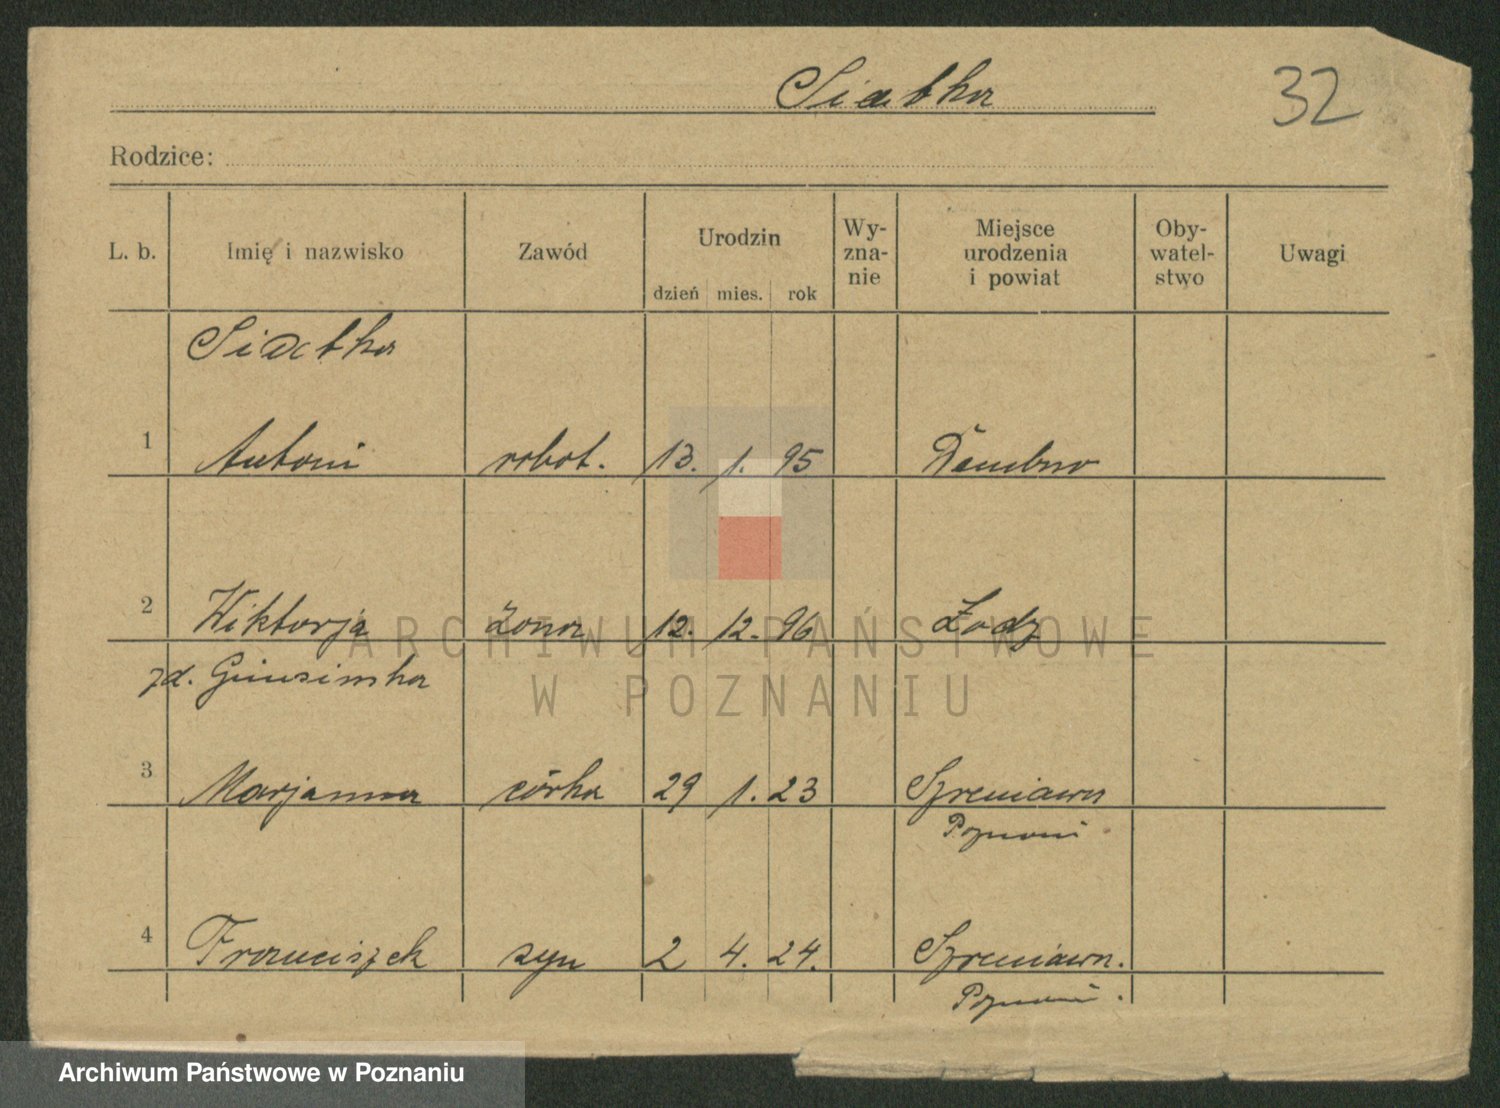 Siatka
32
Rodzice:
L. b. Imię i nazwisko Zawód Urodzin dzień mies. rok Wy-zna-nie Miejsce urodzenia i powiat Oby-watel-stwo Uwagi
Siatka
1 Antoni robot. 13. 1. 95 Dembno
2 Wiktorja żona 12. 12. 96 Łodz
zd.
3 Marjanna córka 29 1. 23 Szreniawa
Poznań
4 Franciszek syn 2 4. 24. Szreniawa.
Poznań.
ARCHIWUM PAŃSTWOWE
W POZNANIU
Archiwum Państwowe w Poznaniu